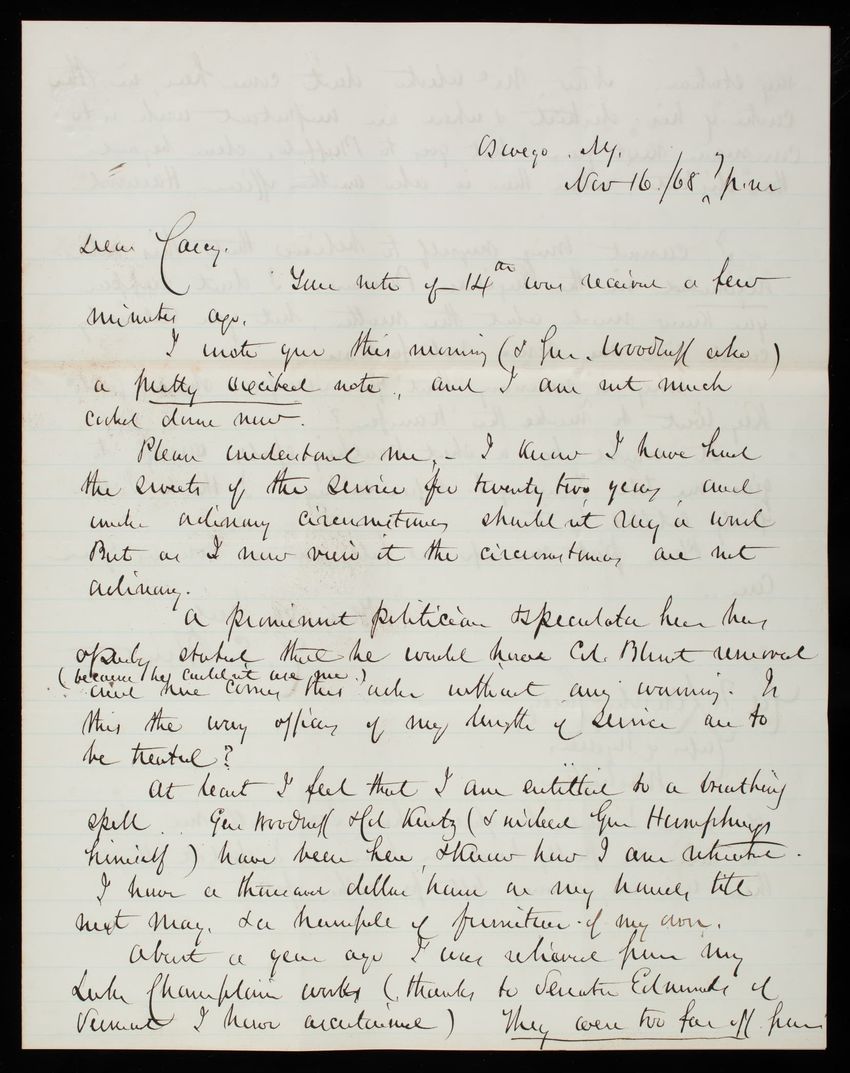 Oswego. N.Y.
Nov 16./68, 7 p.m
Dear Casey.
Your note of 14th was received a few
minutes ago.
I wrote you this morning (& Gen. Woodruff also)
a pretty excited note, and I am not much
cooled down now.
Please understand me, - I know I have had
the sweets of the service for twenty two years, and
under ordinary circumstances should n't say a word
But as I now view it the circumstances are not
ordinary.
A prominent politician & speculator here has
openly stated that he would have Col. Blunt removed
(because he could n't use me.)
and now comes this order without any warning. Is
this the way officers of my length of service are to
be treated?
At least I feel that I am entitled to a breathing
spell. Gen Woodruff & Col Kurtz (& indeed Gen Humphreys
himself) have been here, & know how I am situated.
I have a thousand dollar house on my hands till
next May. & a houseful of furniture of my own.
About a year ago I was relieved from my
Lake Champlain works (thanks to Senator Edmunds of
Vermont I have ascertained) They were too far off from